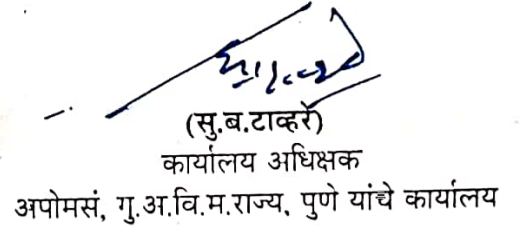 (सु.ब.टाव्हरे)
कार्यालय अधिक्षक
अपोमसं, गु.अ.वि.म.राज्य, पुणे यांचे कार्यालय